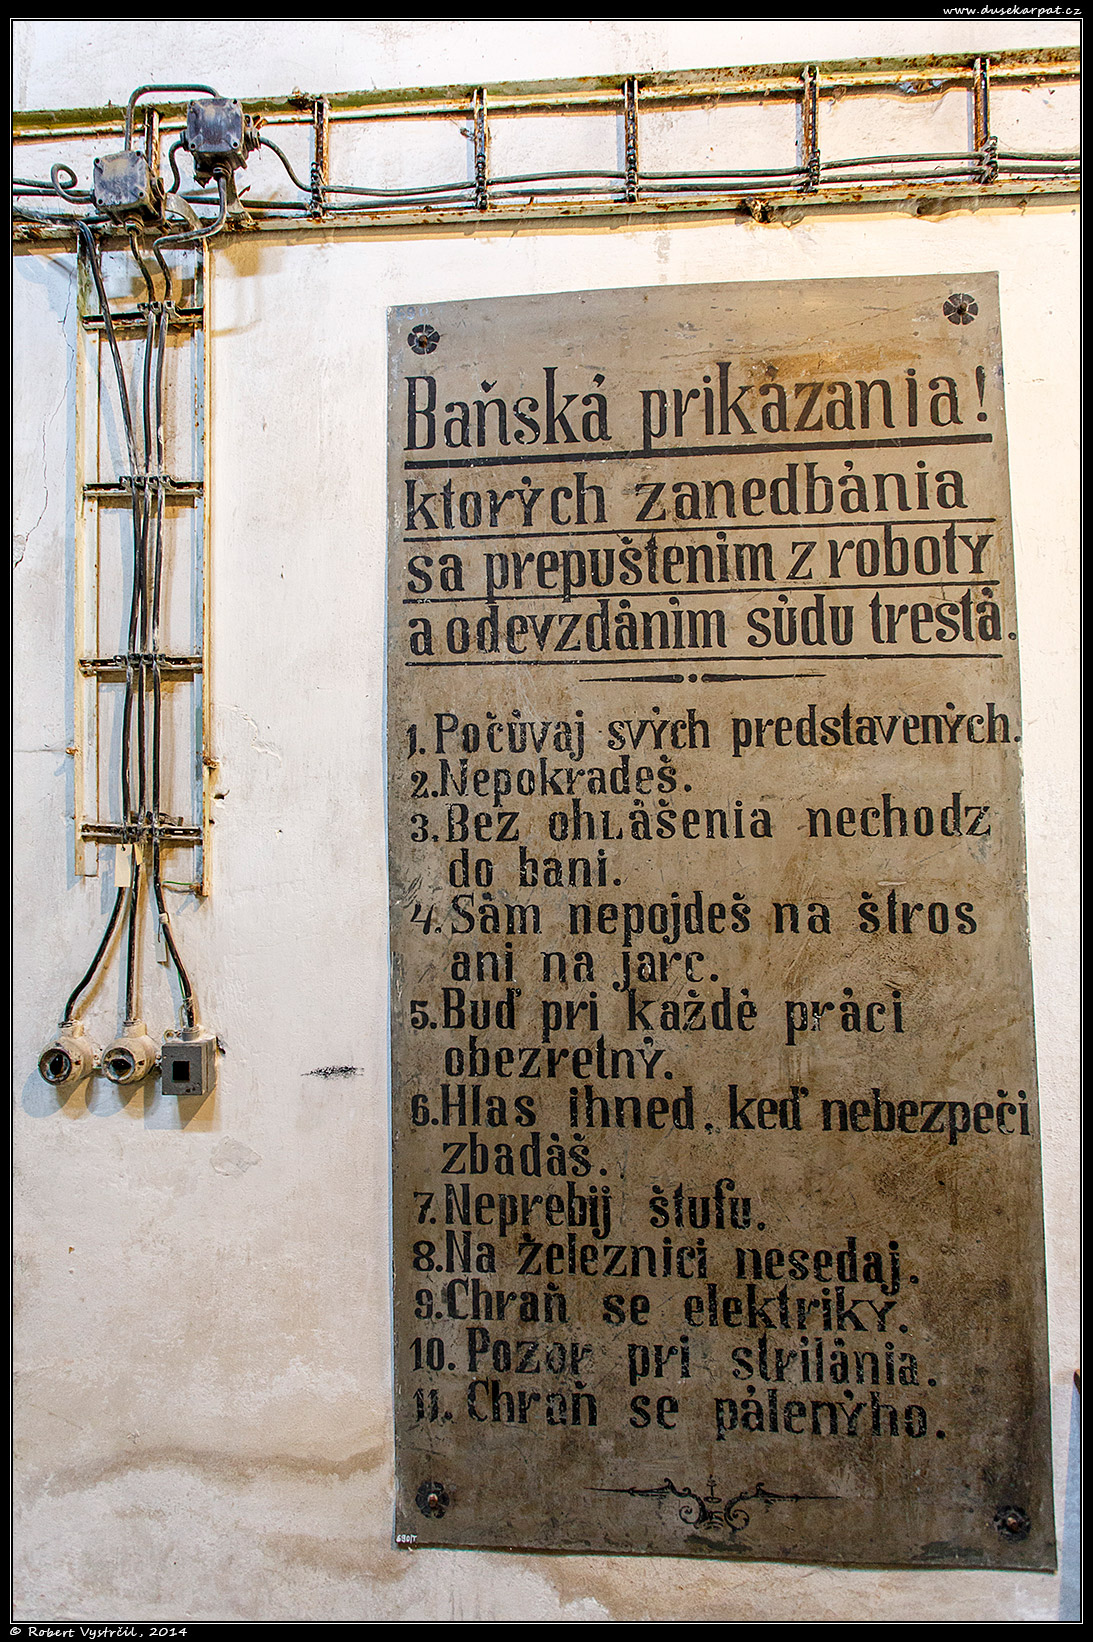 www.dusekarpat.cz
Baňská prikázania!
ktorých zanedbánia
sa prepuštenim z roboty
a odevzdánim súdu trestá.
1. Počúvaj svých predstavených.
2. Nepokradeš.
3. Bez ohlášenia nechodz
do bani.
4. Sám nepojdeš na štros
ani na jarc.
5. Buď pri každé práci
obezretný.
6. Hlas ihned, keď nebezpeči
zbadáš.
7. Neprebij štufu.
8. Na železnici nesedaj.
9. Chraň se elektriky.
10. Pozor pri strilánia.
11. Chraň se páleného.
690/T
© Robert Vystrčil, 2014